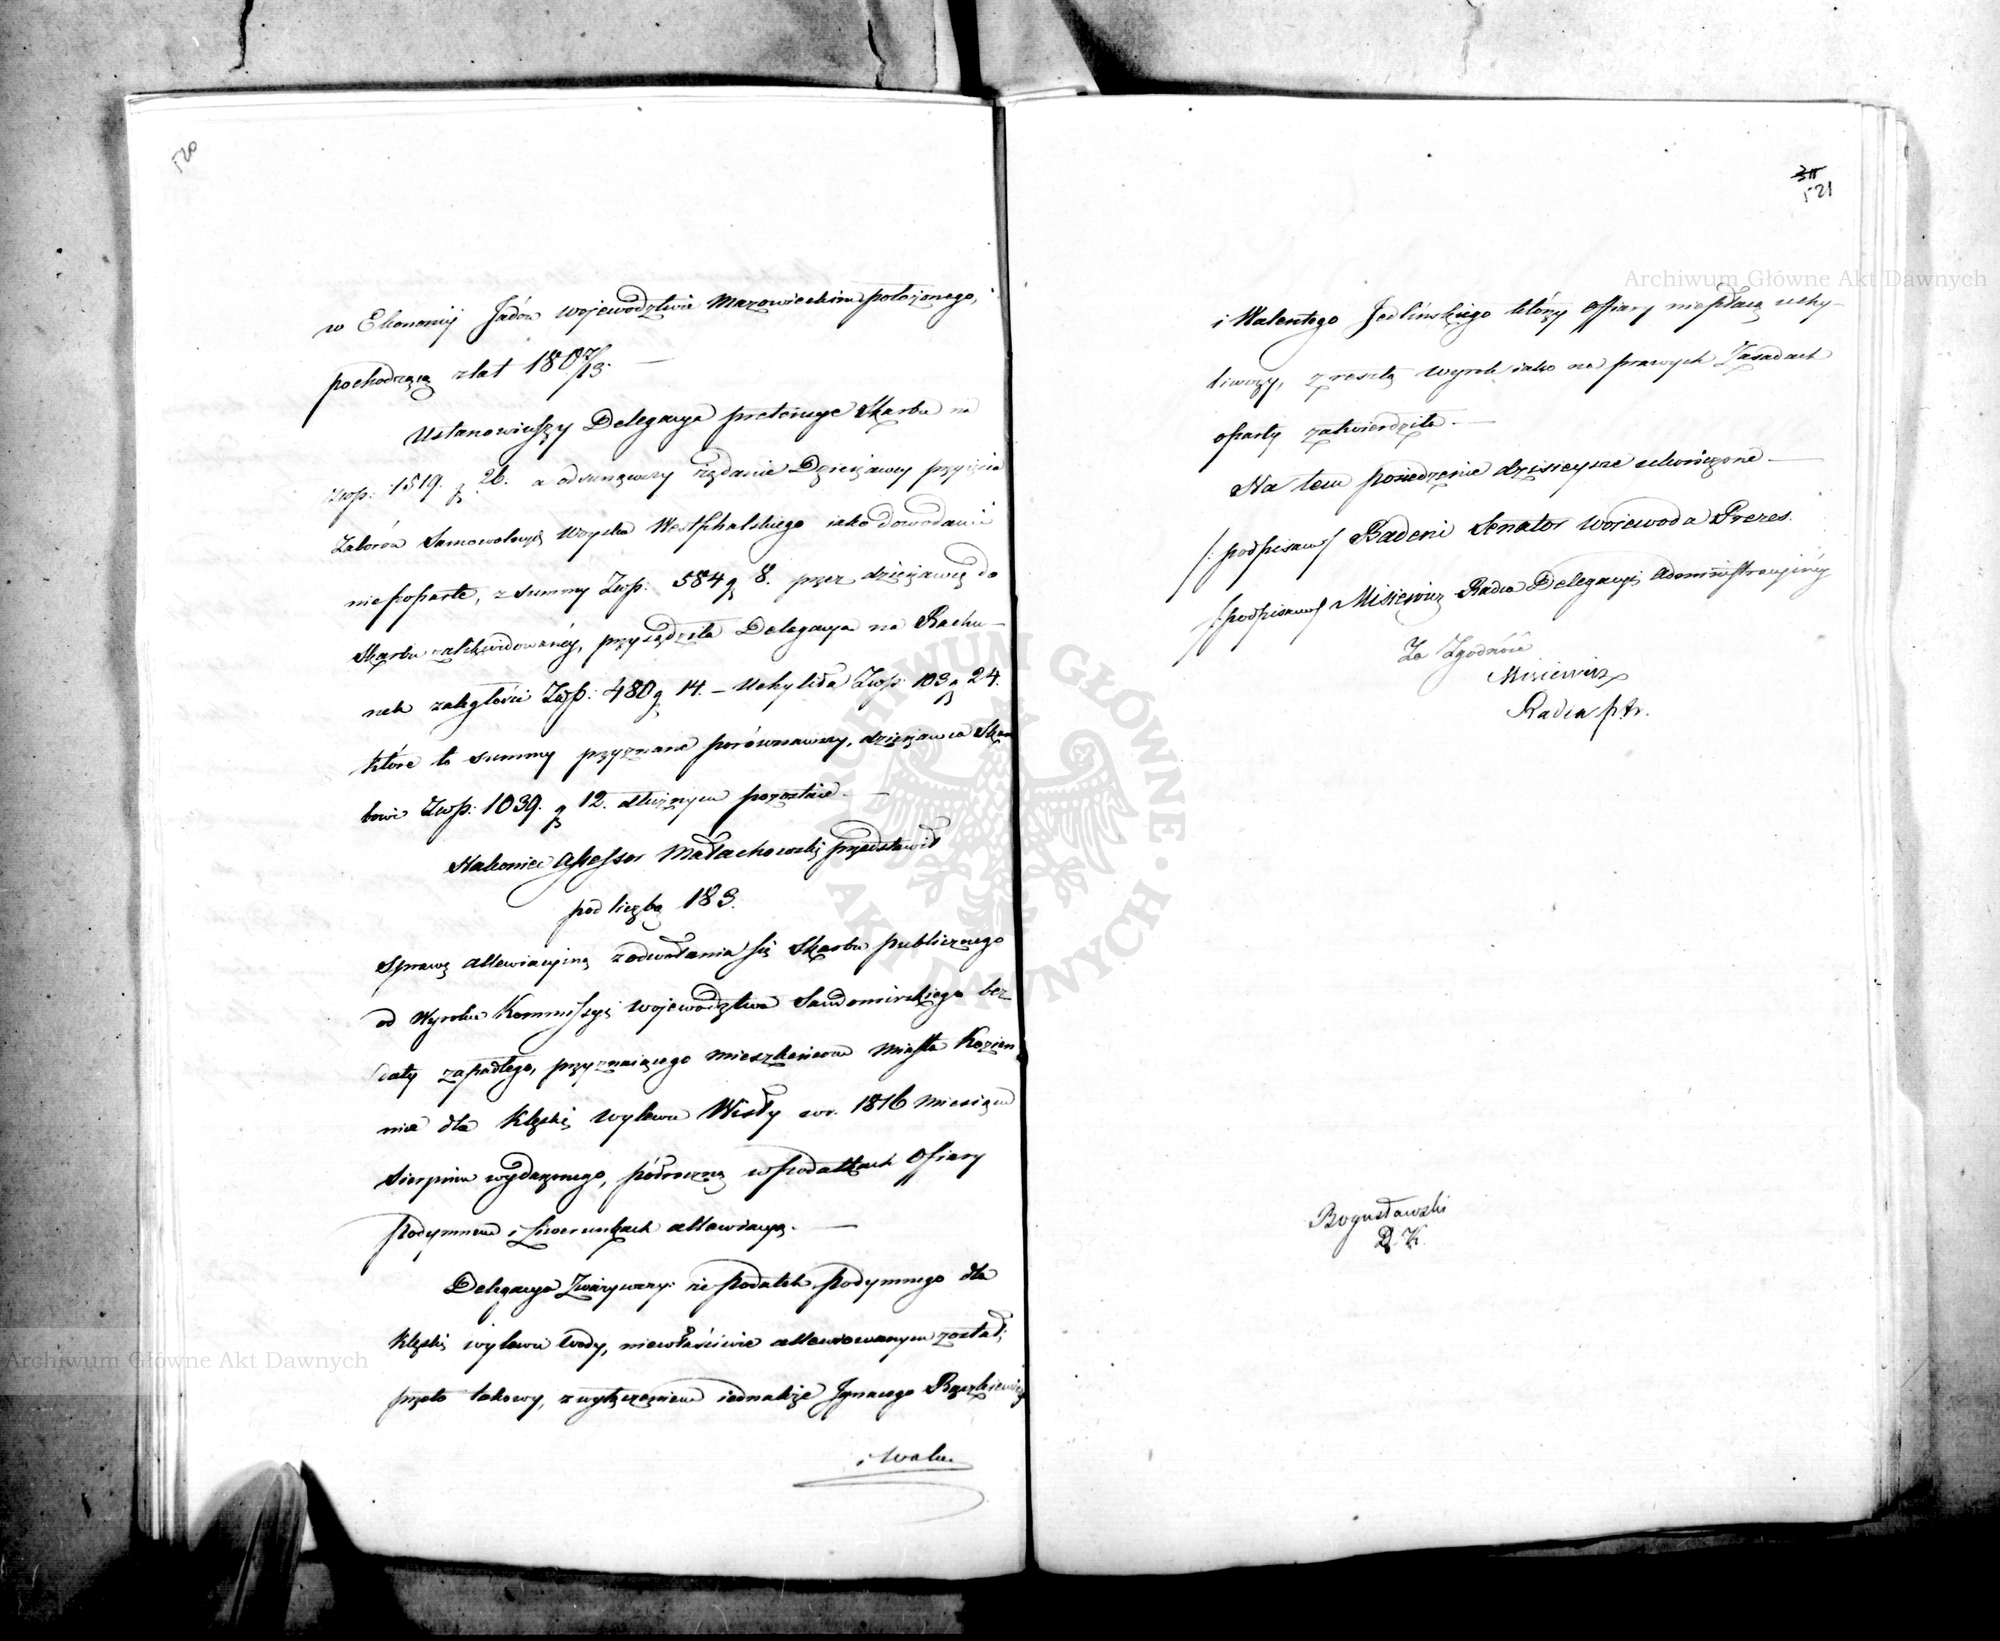 520
w Ekonomij Jadów województwie Mazowieckim położonego,
pochodzącą z lat 1807/13. —
Ustanowiwszy Delegacya pretensye Skarbu na
Złwp: 1519. g 26. a odsunąwszy żądanie Dzierżawcy przyięcia
Zaborów Samowolnych Woyska Westphalskiego iako dowodami
niepoparte, z summy Złwp: 584 g 8. przez dzierżawcę do
Skarbu zalikwidowanéy, przysądziła Delegacya na Rachu-
nek zaległości Złwp: 480 g 14. — Uchyliła Złwp: 103 g 24.
które to summy przyznane porównawszy, dzierżawca Skar
bowi Złwp: 1039. g 12. dłużnym pozostaie. —
Nakoniec Assessor Małachowski przedstawił
pod liczbą 183.
Sprawę allewiacyiną z odwołania się Skarbu publicznego
od Wyroku Kommissyi Województwa Sandomirskiego bez
daty zapadłego, przyznaiącego mieszkańcom Miasta Kozien
nic dla Klęski wylewu Wisły w r. 1816 miesiącu
Sierpniu wydarzonego, półroczną w podatkach Ofiary
Podymnem i Liwerunkach allewiacyą. —
Delegacya Zważywszy: że podatek podymnego dla
Klęski wylewu wody, niewłaściwie allewiowanym został;
przeto takowy, z wyłączeniem iednakże Ignacego Bączkiewicza
i Walen
311
521
i Walentego Jedlińskiego którzy Ofiary niepłacą uchy-
liwszy, z resztą wyrok iako na prawych Zasadach
oparty zatwierdziła. —
Na tem posiedzenie dzisieysze ukończone —
/: podpisano/ Badeni Senator Wojewoda Prezes.
/: podpisano/ Misiewicz Radca Delegacyi Administracyinéy
Za Zgodność
Misiewicz
Radca
Bogusławski
D. K.
Archiwum Główne Akt Dawnych
Archiwum Główne Akt Dawnych
ARCHIWUM GŁÓWNE · AKT DAWNYCH ·